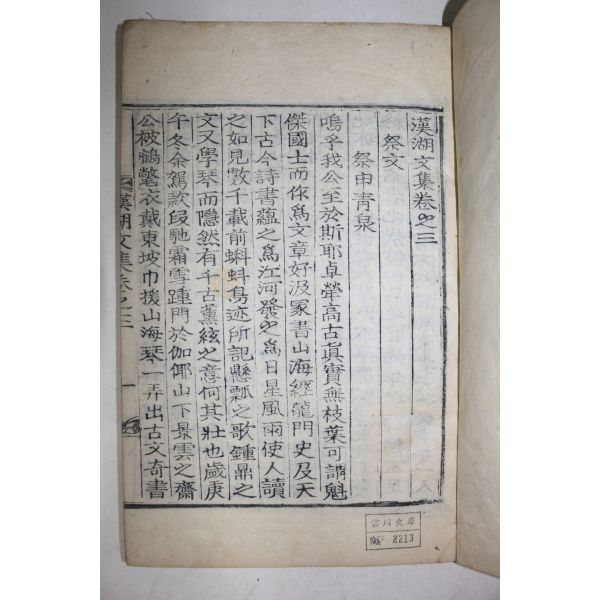 漢湖文集卷之三
祭文
祭申青泉
嗚乎我公至於斯耶卓犖高古眞實無枝葉可謂魁
傑國士而作爲文章好汲冢書山海經龍門史及天
下古今詩書蘊之爲江河發之爲日星風雨使人讀
之如見數千載前蝌蚪鳥迹所記懸瓢之歌鍾鼎之
文又學琴而隱然有千古薰絃之意何其壯也歲庚
午冬余駕款段馳霜雪踵門於伽倻山下景雲之齋
公被鶴氅衣戴東坡巾援山海琴一弄出古文奇書
漢湖文集卷之三
一
文庫
No. 2213